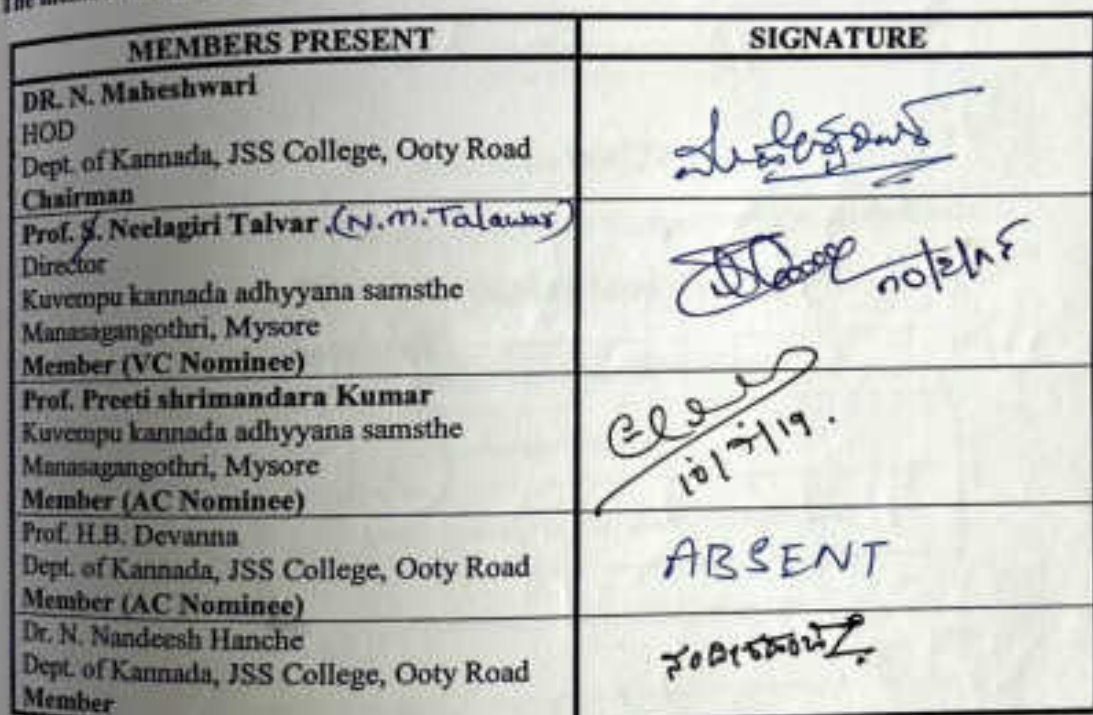 MEMBERS PRESENT
SIGNATURE
DR. N. Maheshwari
HOD
Dept. of Kannada, JSS College, Ooty Road
Chairman
Prof. S. Neelagiri Talvar .(N.M.Talawar)
Director
Kuvempu kannada adhyyana samsthe
Manasagangothri, Mysore
Member (VC Nominee)
Prof. Preeti shrimandara Kumar
Kuvempu kannada adhyyana samsthe
Manasagangothri, Mysore
Member (AC Nominee)
10/7/19.
Prof. H.B. Devanna
Dept. of Kannada, JSS College, Ooty Road
Member (AC Nominee)
ABSENT
Dr. N. Nandeesh Hanche
Dept. of Kannada, JSS College, Ooty Road
Member